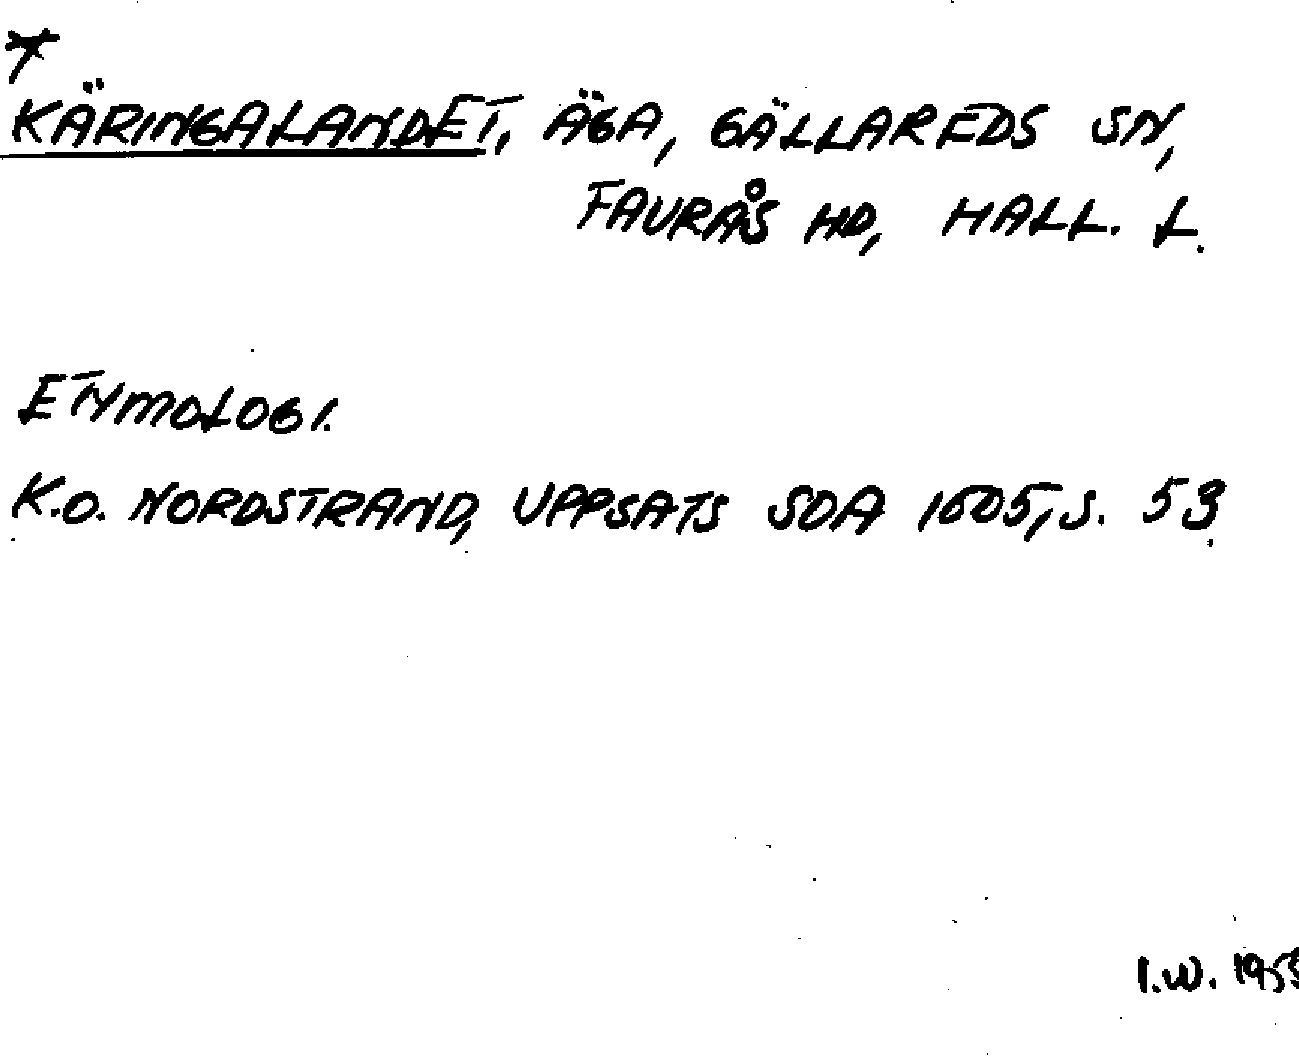 KÄRINGALANDET, ÄGA, GÄLLAREDS SN,
FAURÅS HD, HALL. L.
ETYMOLOGI.
K.O. NORDSTRAND, UPPSATS SOA 1605, S. 53.
I.W.